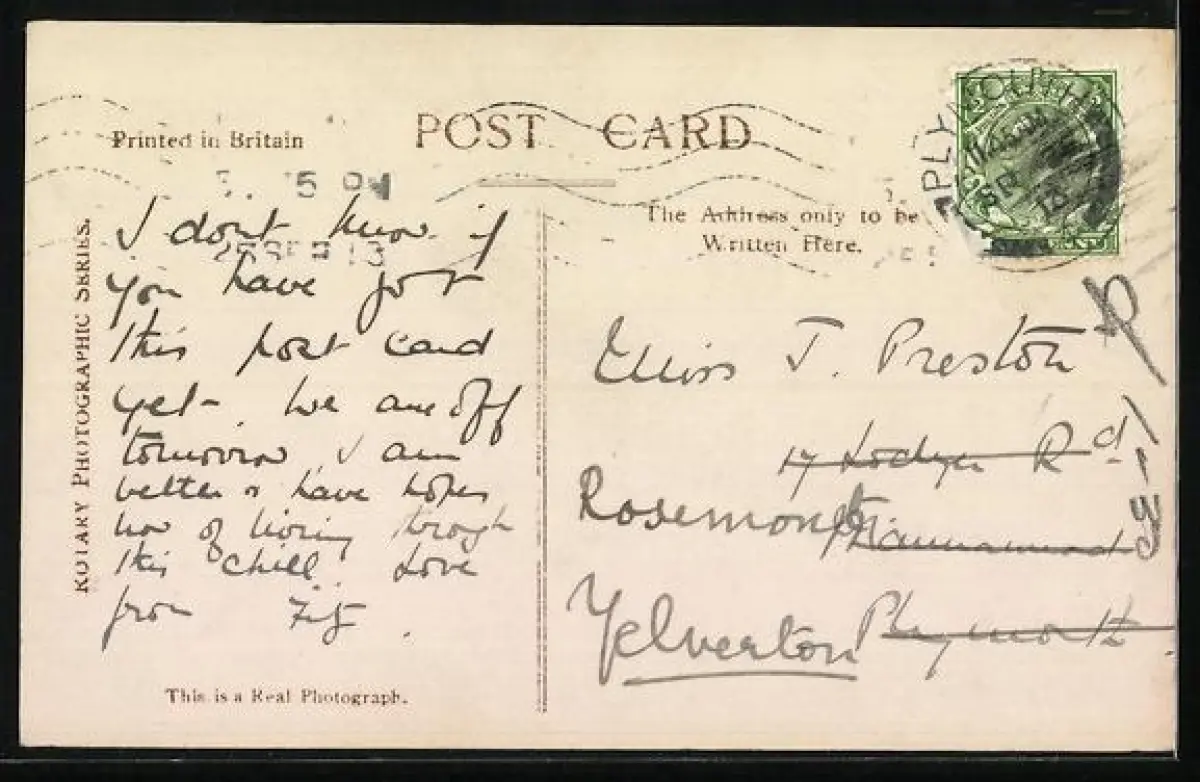 Printed in Britain
POST CARD
PLYMOUTH
11.45 AM
SP
13
5 PM
25 SEP 13
The Address only to be
Written Here.
ROTARY PHOTOGRAPHIC SERIES.
I dont know if
you have got
this post card
yet - we are off
tomorrow I am
better & have hopes
now of living through
this chill. Love
from
Miss J. Preston
17 Rd
Rosemont
Yelverton Plymouth
This is a Real Photograph.